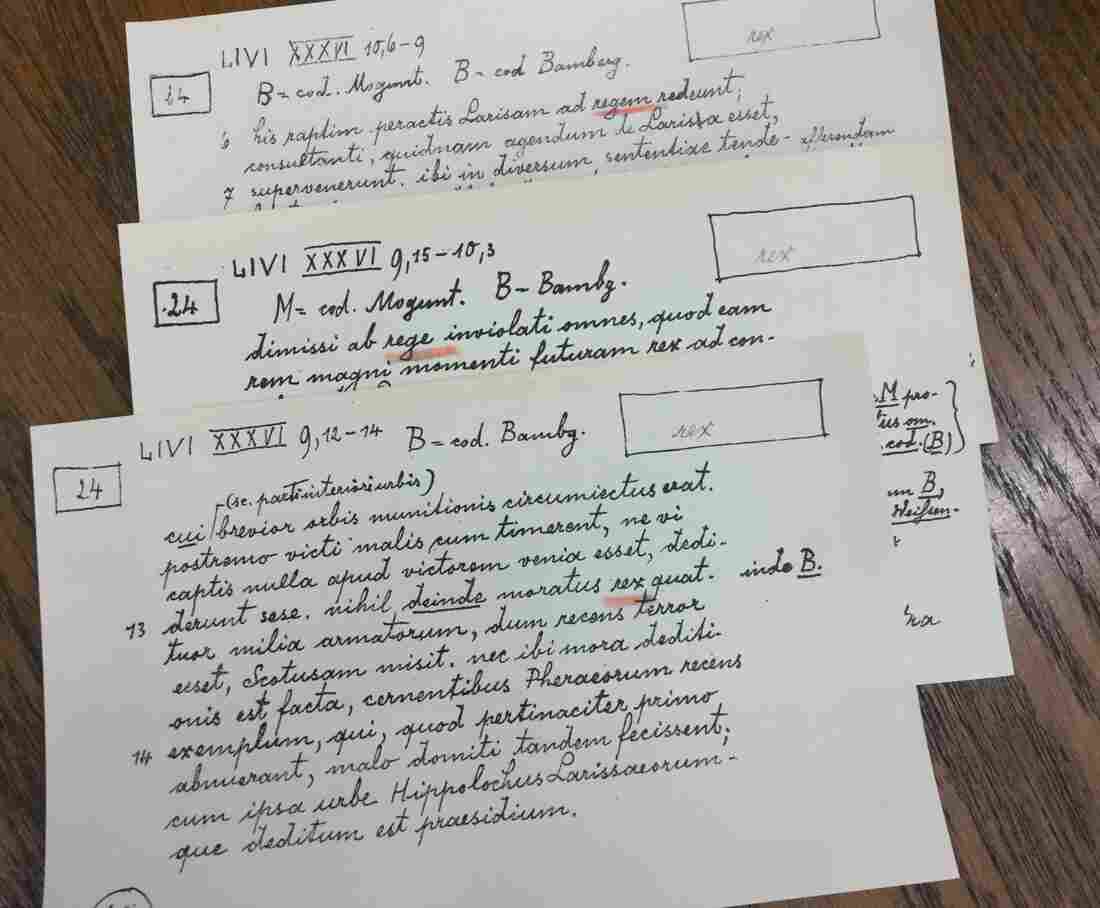 LIVI XXXVI 10,6–9
rex
24
B = cod. Mogunt. B = cod Bamberg.
6 his raptim peractis Larisam ad regem redeunt;
consultanti, quidnam agendum de Larissa esset,
7 supervenerunt. ibi in diversum sententiae tende- efferendam
LIVI XXXVI 9,15–10,3
rex
24
M = cod. Mogunt. B – Bambg.
dimissi ab rege inviolati omnes, quod eam
rem magni momenti futuram rex ad con-
M pro-
om.
cod. (B)
B,
Weißen-
LIVI XXXVI 9,12–14 B = cod. Bambg.
rex
24
(sc. parti interiori urbis)
cui brevior orbis munitionis circumiectus erat.
postremo victi malis cum timerent, ne vi
captis nulla apud victorem venia esset, dedi-
13 derunt sese. nihil deinde moratus rex quat. inde B.
tuor milia armatorum, dum recens terror
esset, Scotusam misit. nec ibi mora dediti-
onis est facta, cernentibus Pheraeorum recens
14 exemplum, qui, quod pertinaciter primo
abnuerant, malo domiti tandem fecissent;
cum ipsa urbe Hippolochus Larissaeorum-
que deditum est praesidium.